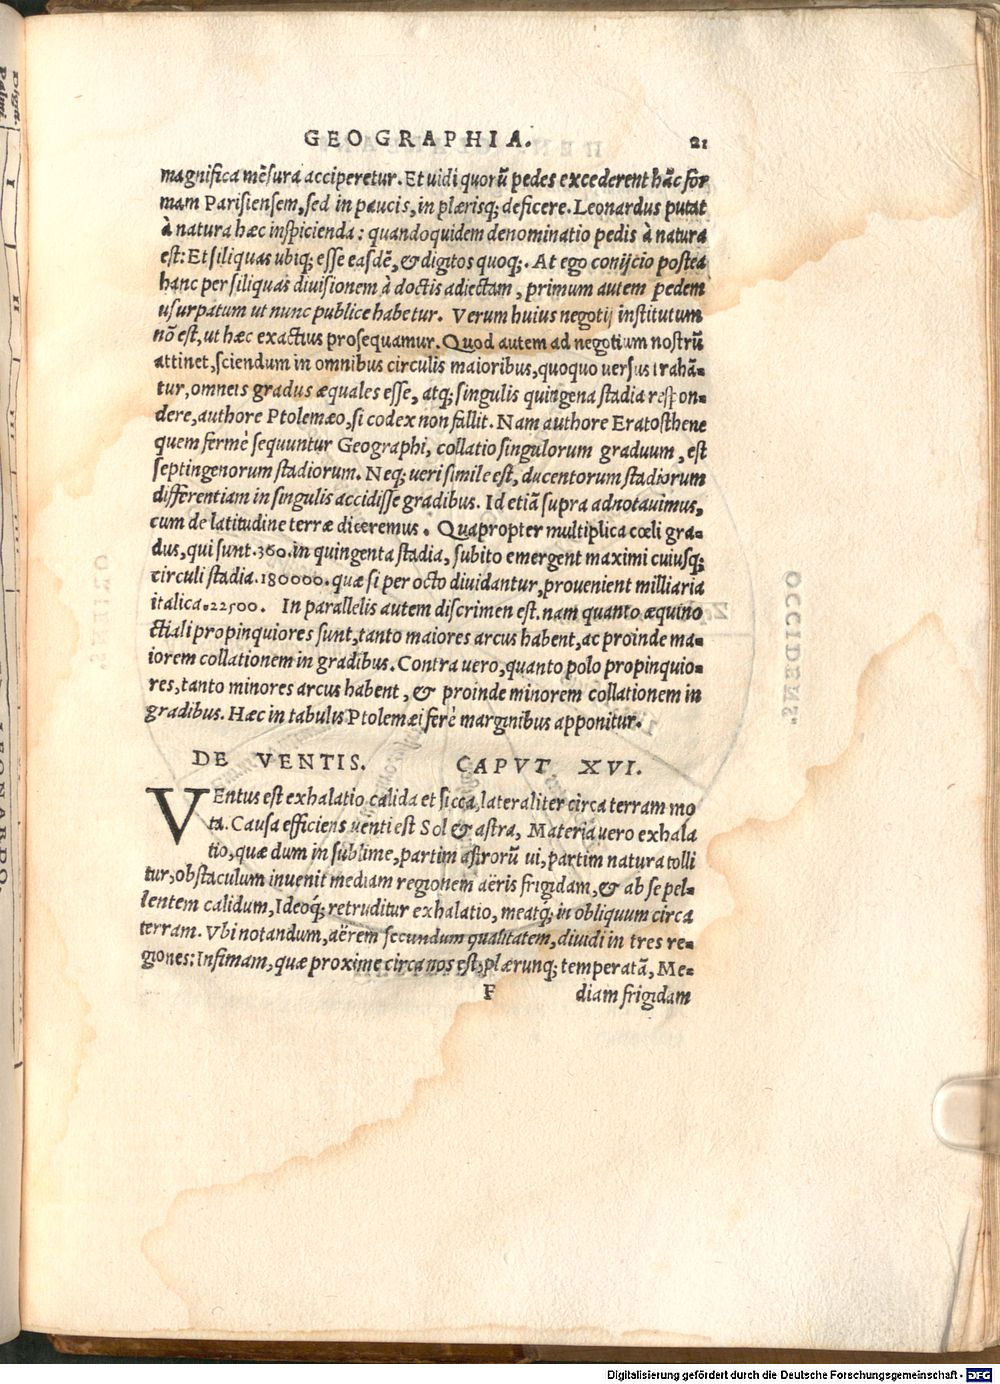 GEOGRAPHIA. 21
magnifica mẽsura acciperetur. Et uidi quorũ pedes excederent hãc for
mam Parisiensem, sed in paucis, in plærisq; deficere. Leonardus putat
à natura hæc inspicienda: quandoquidem denominatio pedis à natura
est: Et siliquas ubiq; esse easdẽ, & digitos quoq;. At ego conijcio postea
hanc per siliquas diuisionem à doctis adiectam, primum autem pedem
usurpatum ut nunc publice habetur. Verum huius negotij institutum
nõ est, ut hæc exactius prosequamur. Quod autem ad negotium nostrũ
attinet, sciendum in omnibus circulis maioribus, quoquo uersus trahã=
tur, omneis gradus æquales esse, atq; singulis quingena stadia respon=
dere, authore Ptolemæo, si codex non fallit. Nam authore Eratosthene
quem fermè sequuntur Geographi, collatio singulorum graduum, est
septingenorum stadiorum. Neq; ueri simile est, ducentorum stadiorum
differentiam in singulis accidisse gradibus. Id etiã supra adnotauimus,
cum de latitudine terræ diceremus. Quapropter multiplica cœli gra=
dus, qui sunt .360. in quingenta stadia, subito emergent maximi cuiusq;
circuli stadia .180000. quæ si per octo diuidantur, prouenient milliaria
italica .22500. In parallelis autem discrimen est. nam quanto æquino
ctiali propinquiores sunt, tanto maiores arcus habent, ac proinde ma=
iorem collationem in gradibus. Contra uero, quanto polo propinquio=
res, tanto minores arcus habent, & proinde minorem collationem in
gradibus. Hæc in tabulis Ptolemæi ferè marginibus apponitur.
DE VENTIS. CAPVT XVI.
VEntus est exhalatio calida et sicca, lateraliter circa terram mo
ta. Causa efficiens uenti est Sol & astra, Materia uero exhala
tio, quæ dum in sublime, partim astrorũ ui, partim natura tolli
tur, obstaculum inuenit mediam regionem aëris frigidam, & ab se pel=
lentem calidum, Ideoq́; retruditur exhalatio, meatq́; in obliquum circa
terram. Vbi notandum, aërem secundum qualitatem, diuidi in tres re=
giones: Infimam, quæ proxime circa nos est, plærunq; temperatã, Me=
F diam frigidam
Digitalisierung gefördert durch die Deutsche Forschungsgemeinschaft - DFG